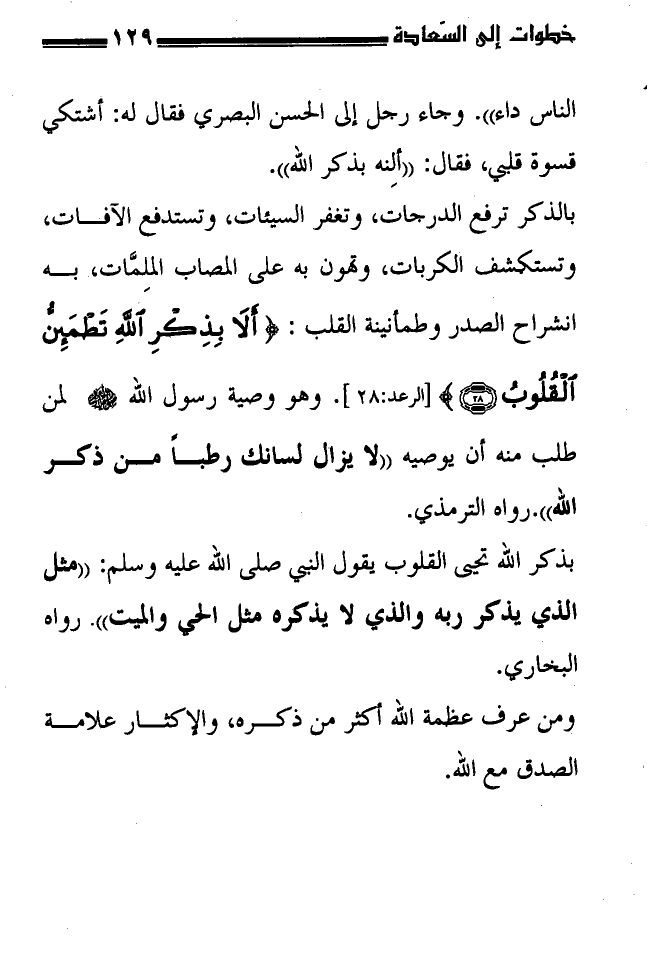 خطوات إلى السَّعادة ١٢٩
الناس داء)). وجاء رجل إلى الحسن البصري فقال له: أشتكي
قسوة قلبي، فقال: ((ألِنه بذكر الله)).
بالذكر ترفع الدرجات، وتغفر السيئات، وتستدفع الآفات،
وتستكشف الكربات، وتهون به على المصاب الملِمَّات، به
انشراح الصدر وطمأنينة القلب : ﴿ أَلَا بِذِكْرِ ٱللَّهِ تَطْمَئِنُّ
ٱلْقُلُوبُ ٢٨ ﴾ [الرعد:٢٨]. وهو وصية رسول الله ﷺ لمن
طلب منه أن يوصيه ((لا يزال لسانك رطباً من ذكر
الله)).رواه الترمذي.
بذكر الله تحيى القلوب يقول النبي صلى الله عليه وسلم: ((مثل
الذي يذكر ربه والذي لا يذكره مثل الحي والميت)). رواه
البخاري.
ومن عرف عظمة الله أكثر من ذكره، والإكثار علامة
الصدق مع الله.